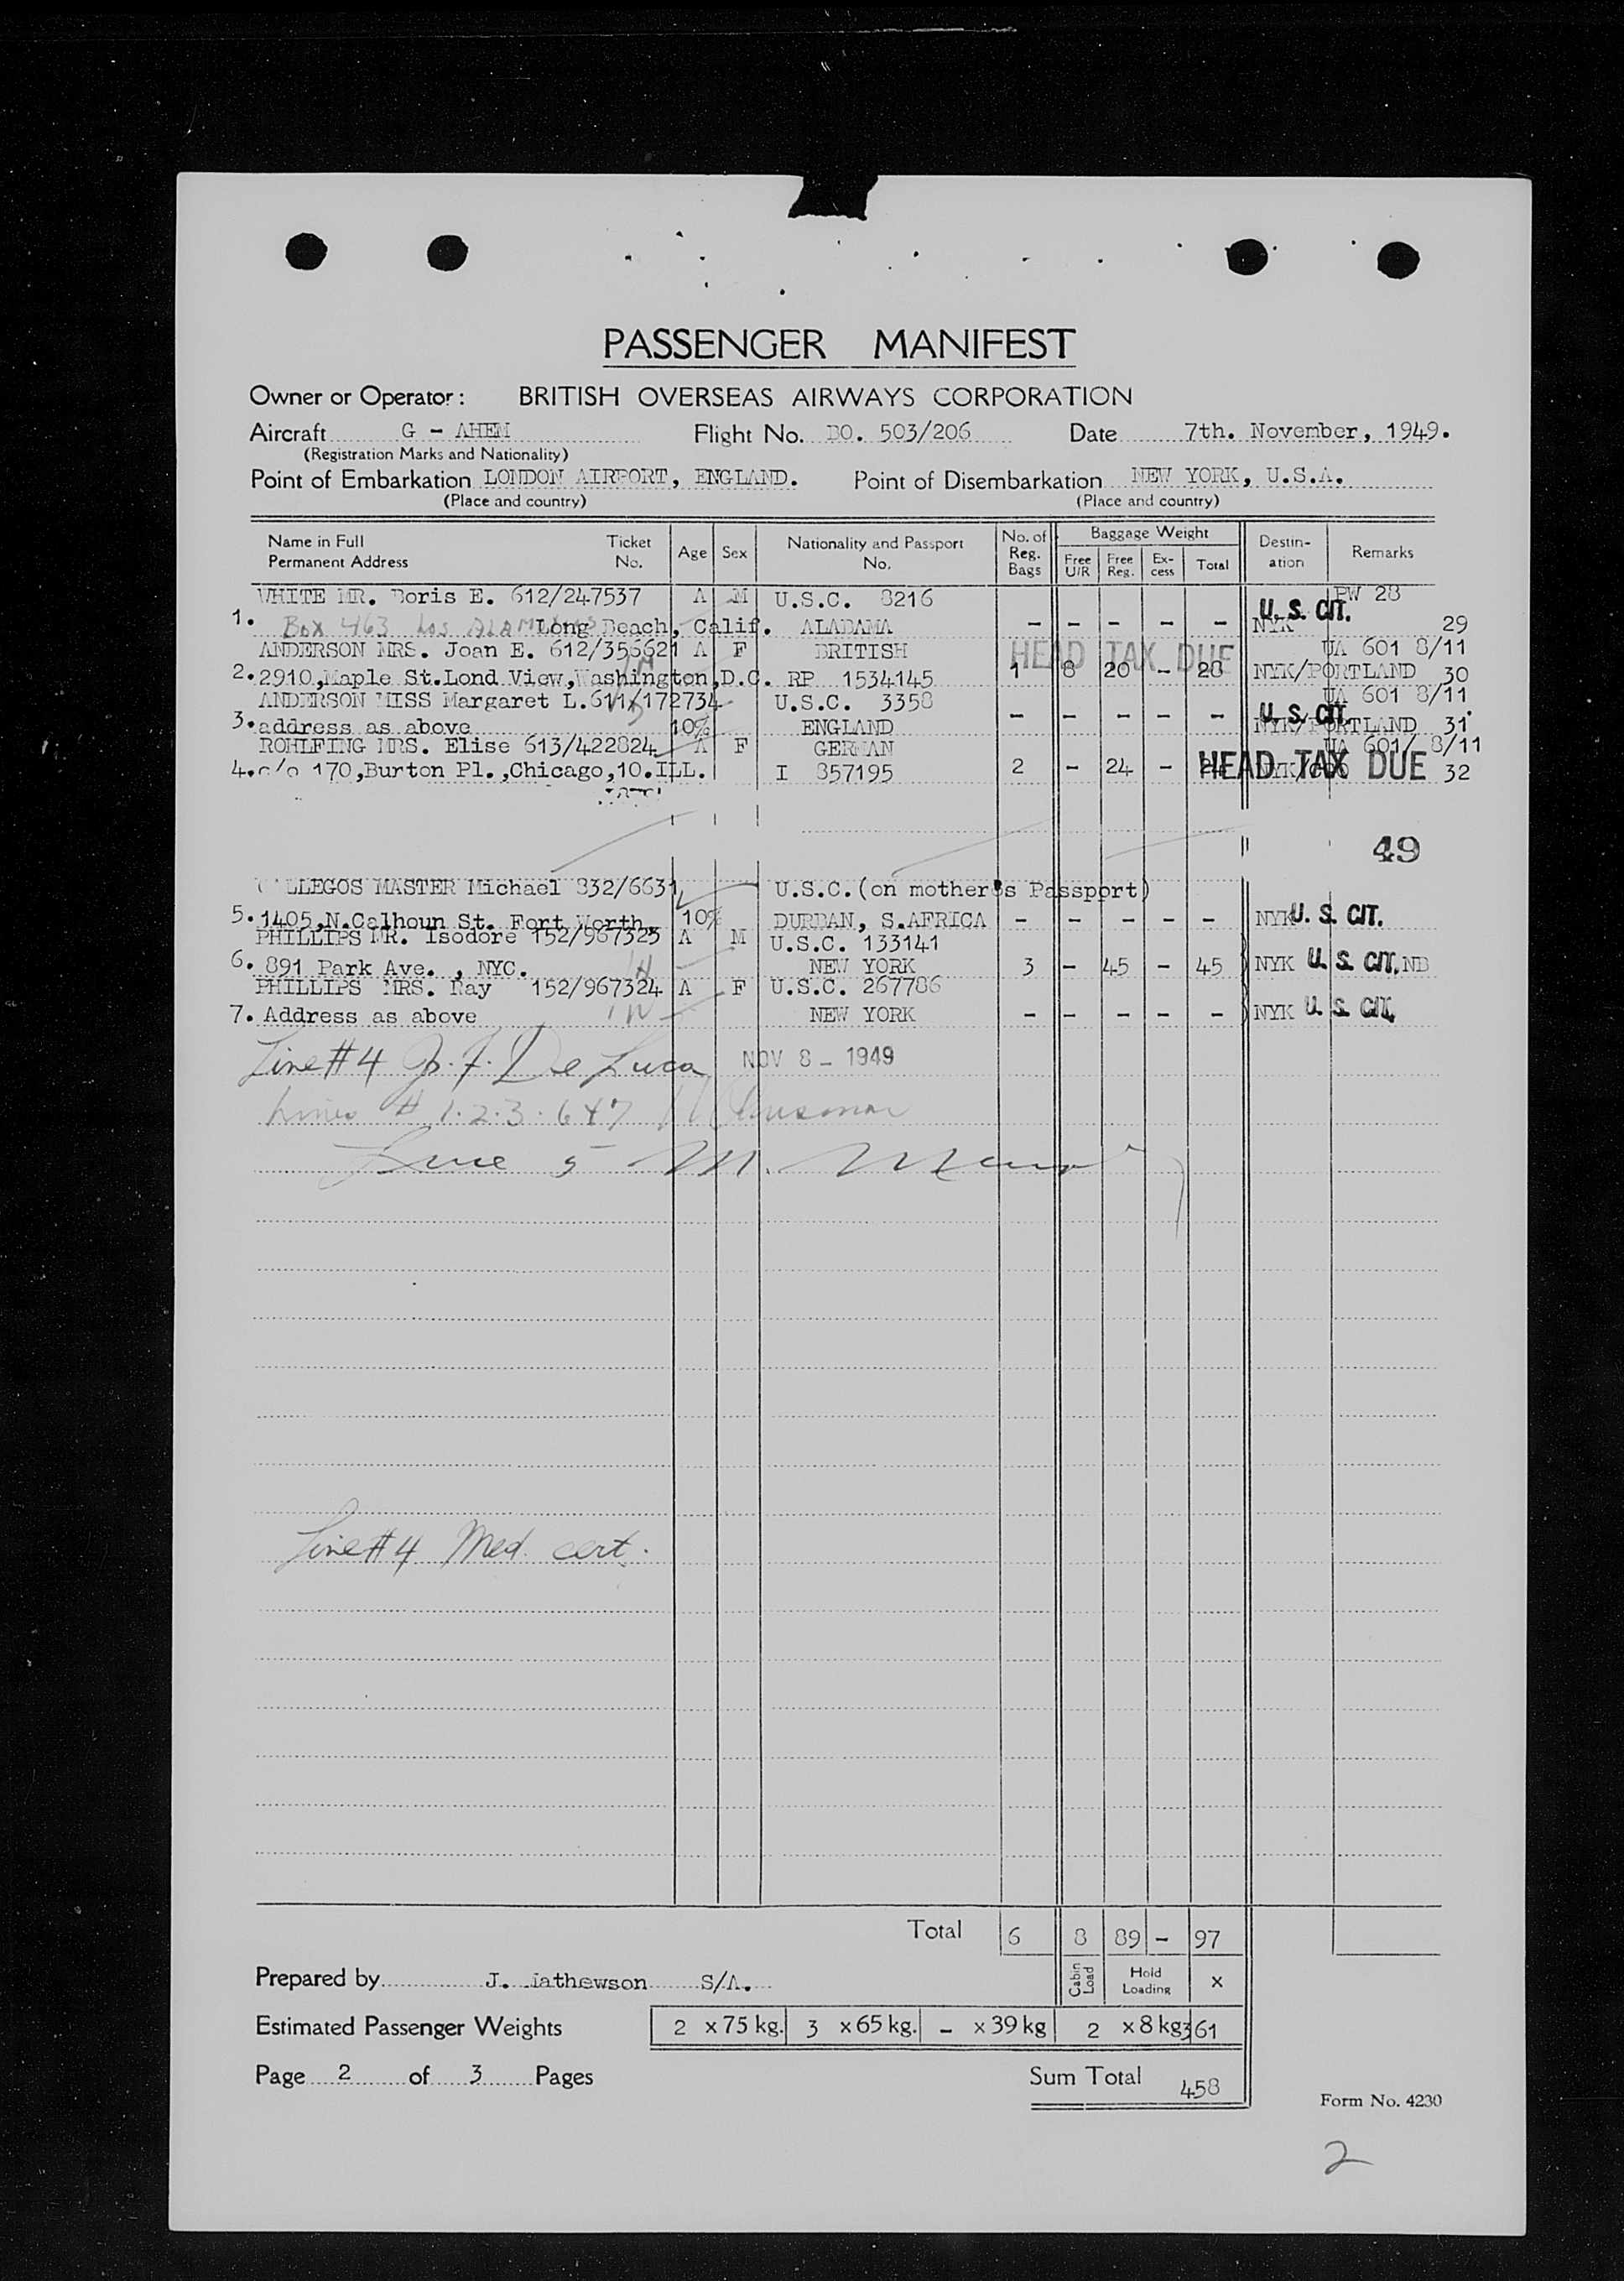 PASSENGER MANIFEST
Owner or Operator: BRITISH OVERSEAS AIRWAYS CORPORATION
Aircraft G - AHEM Flight No. BO. 503/206 Date 7th. November, 1949.
(Registration Marks and Nationality)
Point of Embarkation LONDON AIRPORT, ENGLAND. Point of Disembarkation NEW YORK, U.S.A.
(Place and country) (Place and country)
Name in Full Permanent Address Ticket No. Age Sex Nationality and Passport No. No. of Reg. Bags Baggage Weight Free U/R Free Reg. Ex-cess Total Destin-ation Remarks
WHITE MR. Boris E. 612/247537 A M U.S.C. 8216 PW 28
1. Box 463 Los Alamitos Long Beach, Calif. ALABAMA - - - - - NYK U. S. CIT. 29
ANDERSON MRS. Joan E. 612/355621 A F BRITISH HEAD TAX DUE UA 601 8/11
2. 2910, Maple St. Lond View, Washington, D.C. RP 1534145 1 8 20 - 28 NYK/PORTLAND 30
ANDERSON MISS Margaret L. 611/172734 U.S.C. 3358 UA 601 8/11
3. address as above 10% ENGLAND - - - - - NYK/PORTLAND U. S. CIT. 31
ROHLFING MRS. Elise 613/422824 A F GERMAN UA 601/ 8/11
4. c/o 170, Burton Pl., Chicago, 10. ILL. I 857195 2 - 24 - 24 HEAD TAX DUE 32
49
LLEGOS MASTER Michael 832/6631 U.S.C. (on mother's Passport)
5. 1405, N. Calhoun St. Fort Worth, 10% DURBAN, S. AFRICA - - - - - NYK U. S. CIT.
PHILLIPS MR. Isodore 152/967323 A M U.S.C. 133141
6. 891 Park Ave. , NYC. NEW YORK 3 - 45 - 45 NYK U. S. CIT. NB
PHILLIPS MRS. Ray 152/967324 A F U.S.C. 267786
7. Address as above NEW YORK - - - - - NYK U. S. CIT.
Line # 4 De Luca NOV 8 - 1949
Lines # 1.2.3.6 & 7
Line 5 M.
Line # 4 Med. cert.
Total 6 8 89 - 97
Prepared by J. Mathewson S/A. Cabin Load Hold Loading x
Estimated Passenger Weights 2 x 75 kg. 3 x 65 kg. - x 39 kg 2 x 8 kg 361
Page 2 of 3 Pages Sum Total 458
Form No. 4230
2